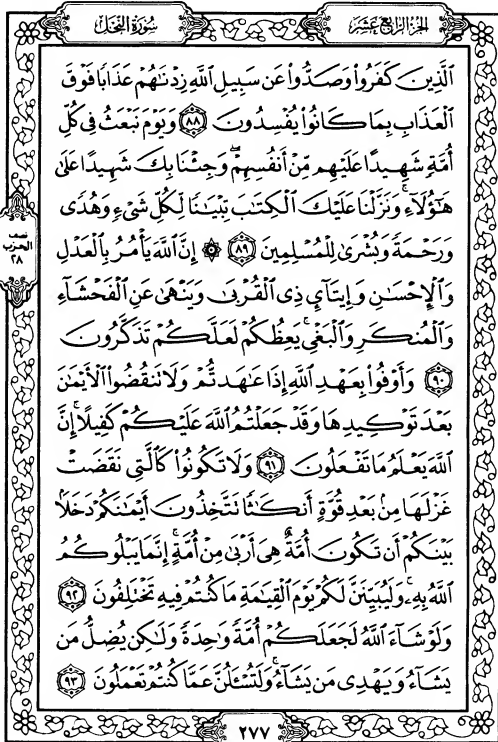 سُورَةُ النَّحْلِ
الجُزْءُ الرَّابِعَ عَشَرَ
الَّذِينَ كَفَرُوا۟ وَصَدُّوا۟ عَن سَبِيلِ اللَّهِ زِدْنَٰهُمْ عَذَابًا فَوْقَ
الْعَذَابِ بِمَا كَانُوا۟ يُفْسِدُونَ ٨٨ وَيَوْمَ نَبْعَثُ فِى كُلِّ
أُمَّةٍ شَهِيدًا عَلَيْهِم مِّنْ أَنفُسِهِمْ ۖ وَجِئْنَا بِكَ شَهِيدًا عَلَىٰ
هَٰٓؤُلَآءِ ۚ وَنَزَّلْنَا عَلَيْكَ الْكِتَٰبَ تِبْيَٰنًا لِّكُلِّ شَىْءٍ وَهُدًى
وَرَحْمَةً وَبُشْرَىٰ لِلْمُسْلِمِينَ ٨٩ ۞ إِنَّ اللَّهَ يَأْمُرُ بِالْعَدْلِ
وَالْإِحْسَٰنِ وَإِيتَآئِ ذِى الْقُرْبَىٰ وَيَنْهَىٰ عَنِ الْفَحْشَآءِ
وَالْمُنكَرِ وَالْبَغْىِ ۚ يَعِظُكُمْ لَعَلَّكُمْ تَذَكَّرُونَ
٩٠ وَأَوْفُوا۟ بِعَهْدِ اللَّهِ إِذَا عَٰهَدتُّمْ وَلَا تَنقُضُوا۟ الْأَيْمَٰنَ
بَعْدَ تَوْكِيدِهَا وَقَدْ جَعَلْتُمُ اللَّهَ عَلَيْكُمْ كَفِيلًا ۚ إِنَّ
اللَّهَ يَعْلَمُ مَا تَفْعَلُونَ ٩١ وَلَا تَكُونُوا۟ كَالَّتِى نَقَضَتْ
غَزْلَهَا مِنۢ بَعْدِ قُوَّةٍ أَنكَٰثًا تَتَّخِذُونَ أَيْمَٰنَكُمْ دَخَلًۢا
بَيْنَكُمْ أَن تَكُونَ أُمَّةٌ هِىَ أَرْبَىٰ مِنْ أُمَّةٍ ۚ إِنَّمَا يَبْلُوكُمُ
اللَّهُ بِهِۦ ۚ وَلَيُبَيِّنَنَّ لَكُمْ يَوْمَ الْقِيَٰمَةِ مَا كُنتُمْ فِيهِ تَخْتَلِفُونَ ٩٢
وَلَوْ شَآءَ اللَّهُ لَجَعَلَكُمْ أُمَّةً وَٰحِدَةً وَلَٰكِن يُضِلُّ مَن
يَشَآءُ وَيَهْدِى مَن يَشَآءُ ۚ وَلَتُسْـَٔلُنَّ عَمَّا كُنتُمْ تَعْمَلُونَ ٩٣
نصف
الحزب
٢٨
٢٧٧